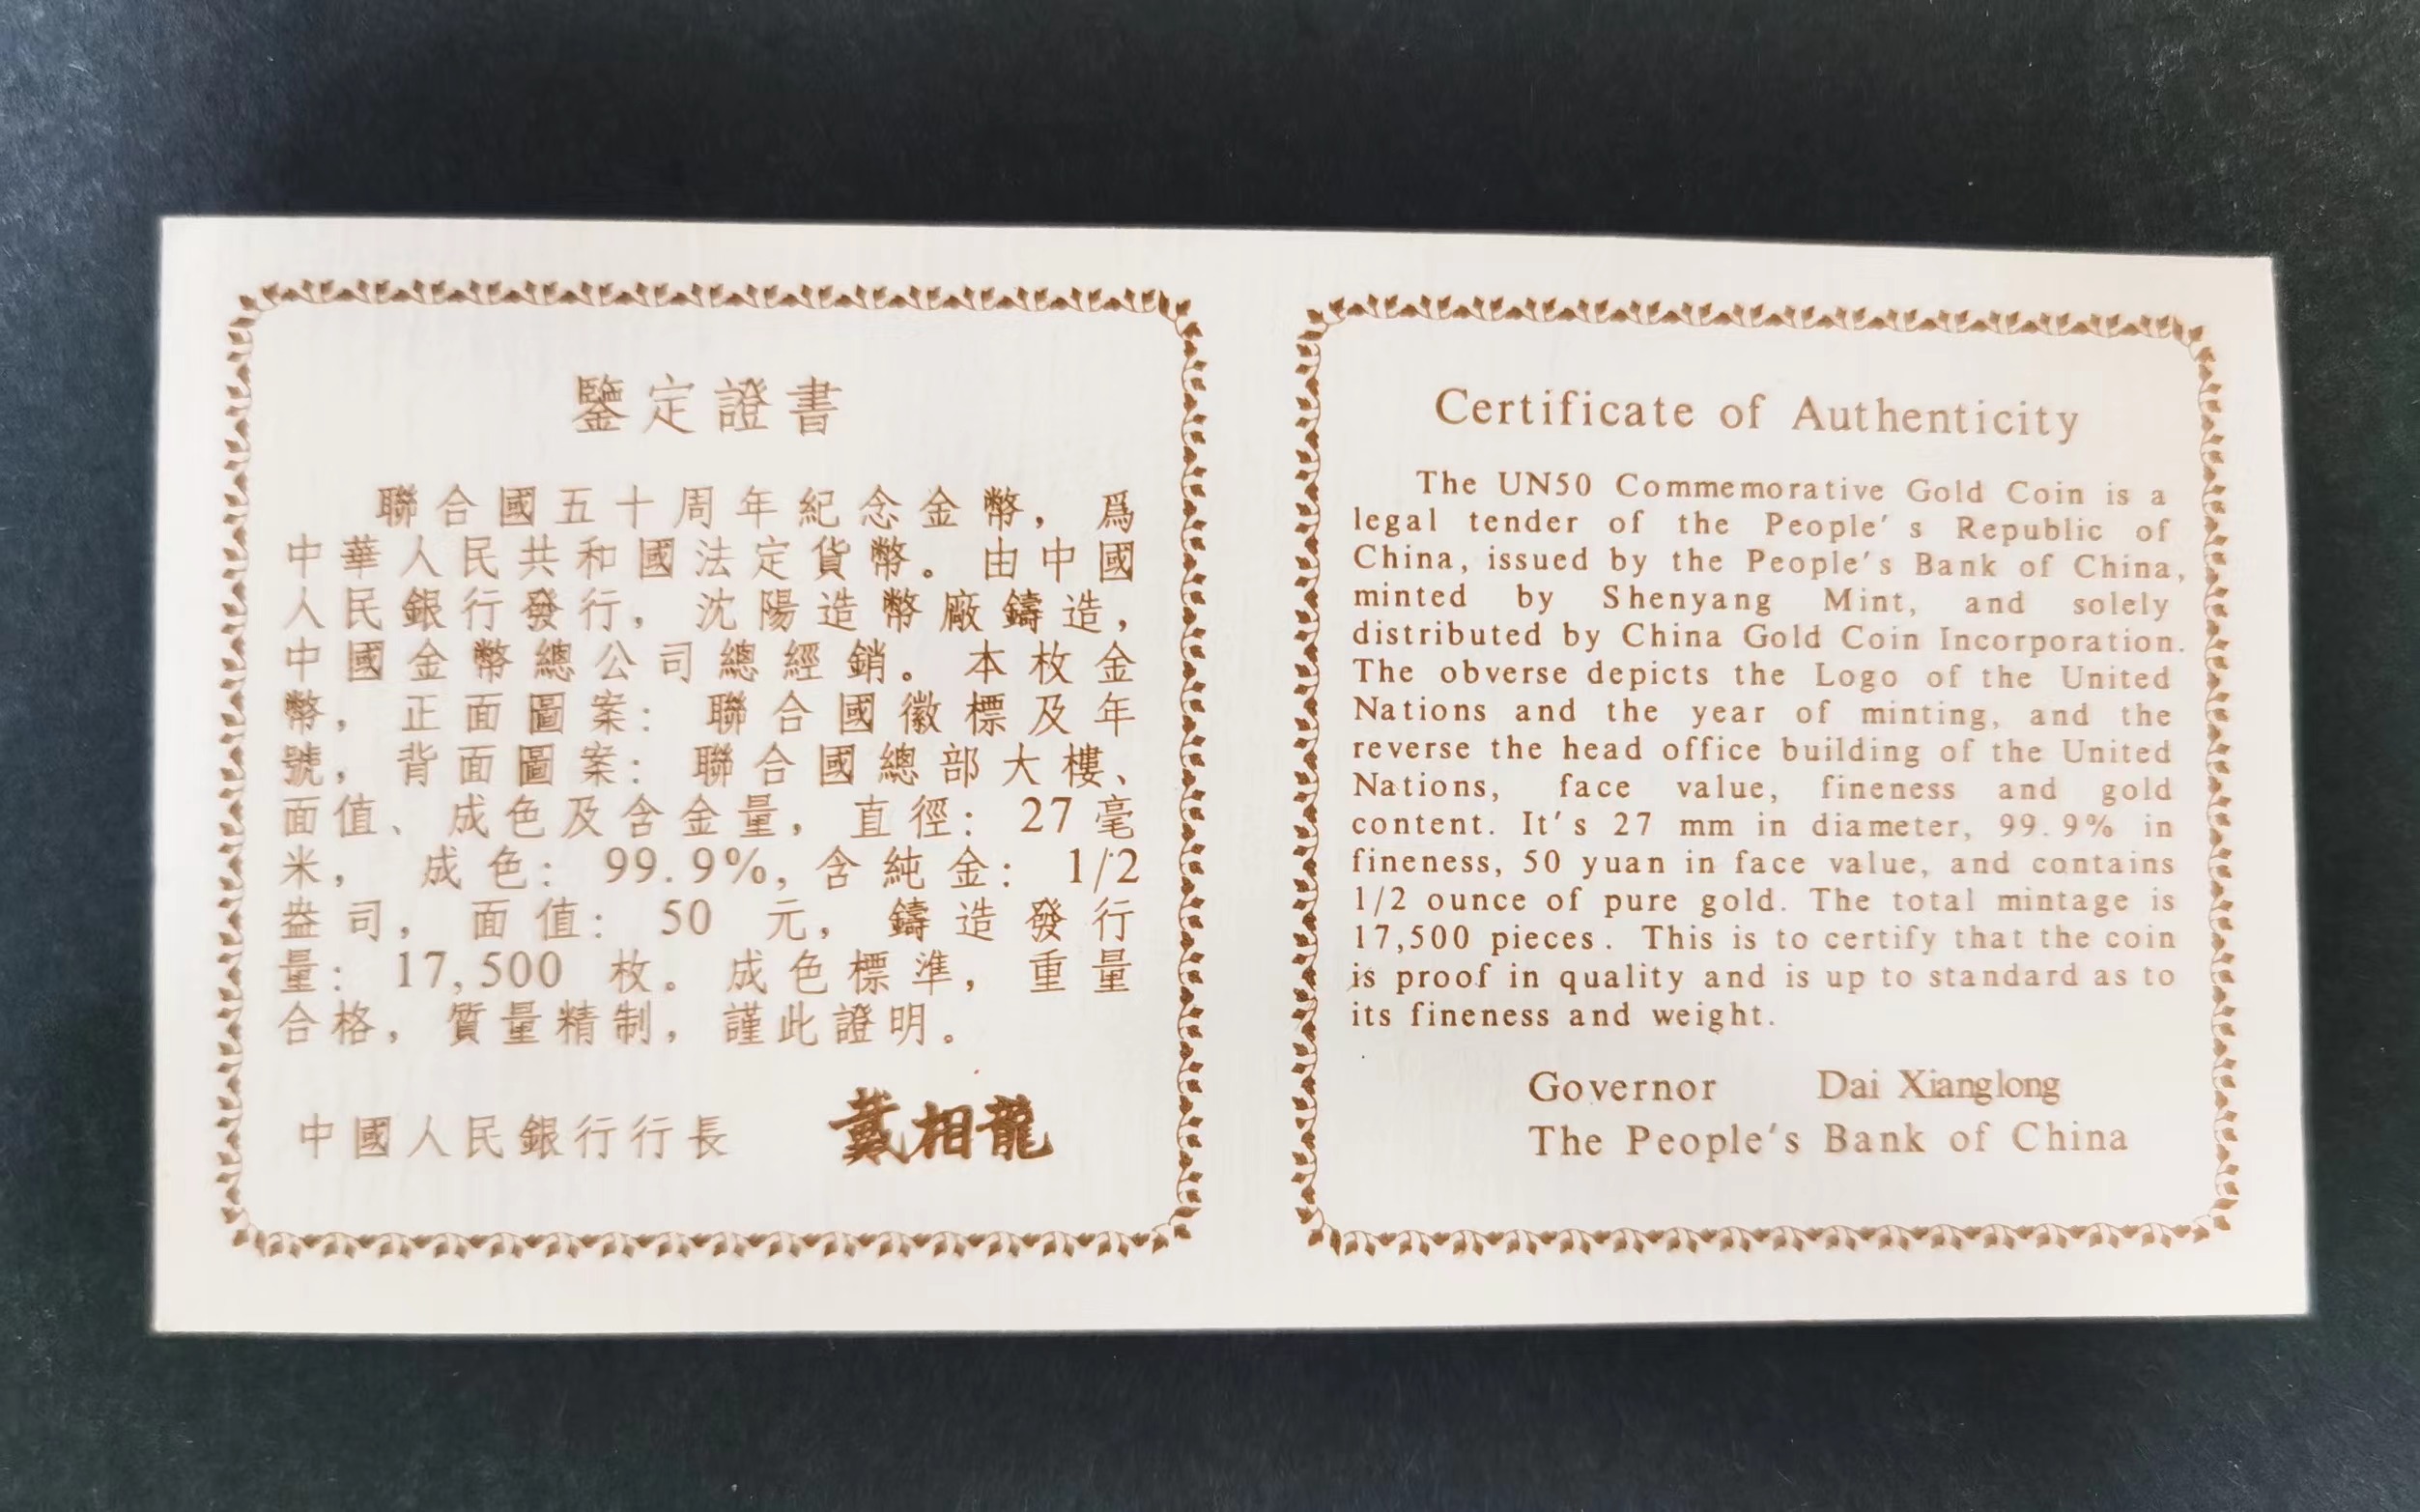 鑒定證書
聯合國五十周年紀念金幣，爲
中華人民共和國法定貨幣。由中國
人民銀行發行，沈陽造幣廠鑄造，
中國金幣總公司總經銷。本枚金
幣，正面圖案：聯合國徽標及年
號，背面圖案：聯合國總部大樓、
面值、成色及含金量，直徑：27毫
米，成色：99.9%，含純金：1/2
盎司，面值：50元，鑄造發行
量：17,500枚。成色標準，重量
合格，質量精制，謹此證明。
中國人民銀行行長 戴相龍
Certificate of Authenticity
The UN50 Commemorative Gold Coin is a
legal tender of the People's Republic of
China, issued by the People's Bank of China,
minted by Shenyang Mint, and solely
distributed by China Gold Coin Incorporation.
The obverse depicts the Logo of the United
Nations and the year of minting, and the
reverse the head office building of the United
Nations, face value, fineness and gold
content. It's 27 mm in diameter, 99.9% in
fineness, 50 yuan in face value, and contains
1/2 ounce of pure gold. The total mintage is
17,500 pieces. This is to certify that the coin
is proof in quality and is up to standard as to
its fineness and weight.
Governor Dai Xianglong
The People's Bank of China